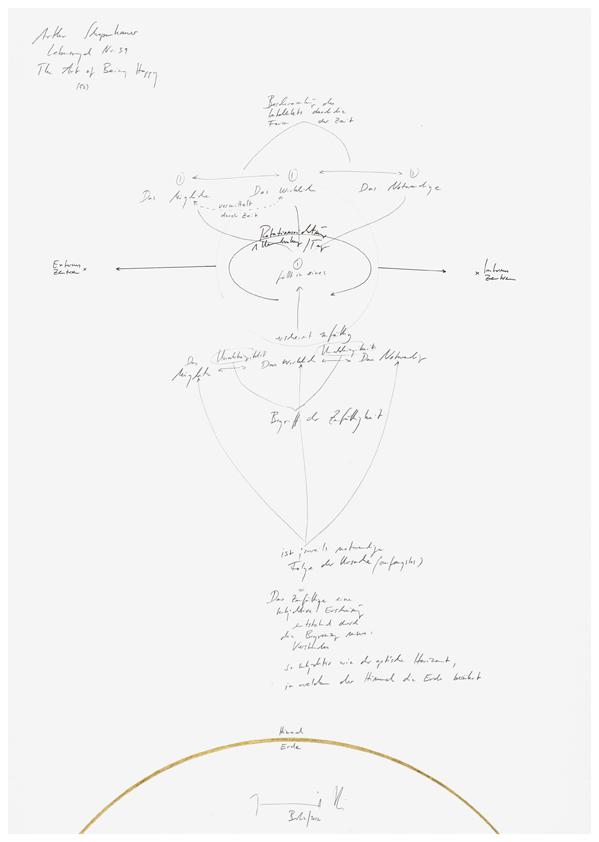 Arthur Schopenhauer
Lebensregel Nr. 39
The Art of Being Happy
(52)
Beschränkung des
Intellekts durch die
Form der Zeit
① ① ①
Das Mögliche Das Wirkliche Das Notwendige
vermittelt
durch Zeit
Rotationsrichtung
1 /Tag
Externes
Zentrum ×
① × Internes
Zentrum
fällt in eines
erscheint zufällig
Unabhängigkeit Unabhängigkeit
Das
Mögliche Das Wirkliche Das Notwendige
Begriff der Zufälligkeit
ist jeweils notwendige
Folge der Ursache (anfangslos)
Das Zufällige eine
subjektive Erscheinung
entstehend durch
die Begrenzung unseres
Verstandes
so subjektiv wie der optische Horizont,
in welchem der Himmel die Erde berührt
Himmel
Erde
Berlin/2012